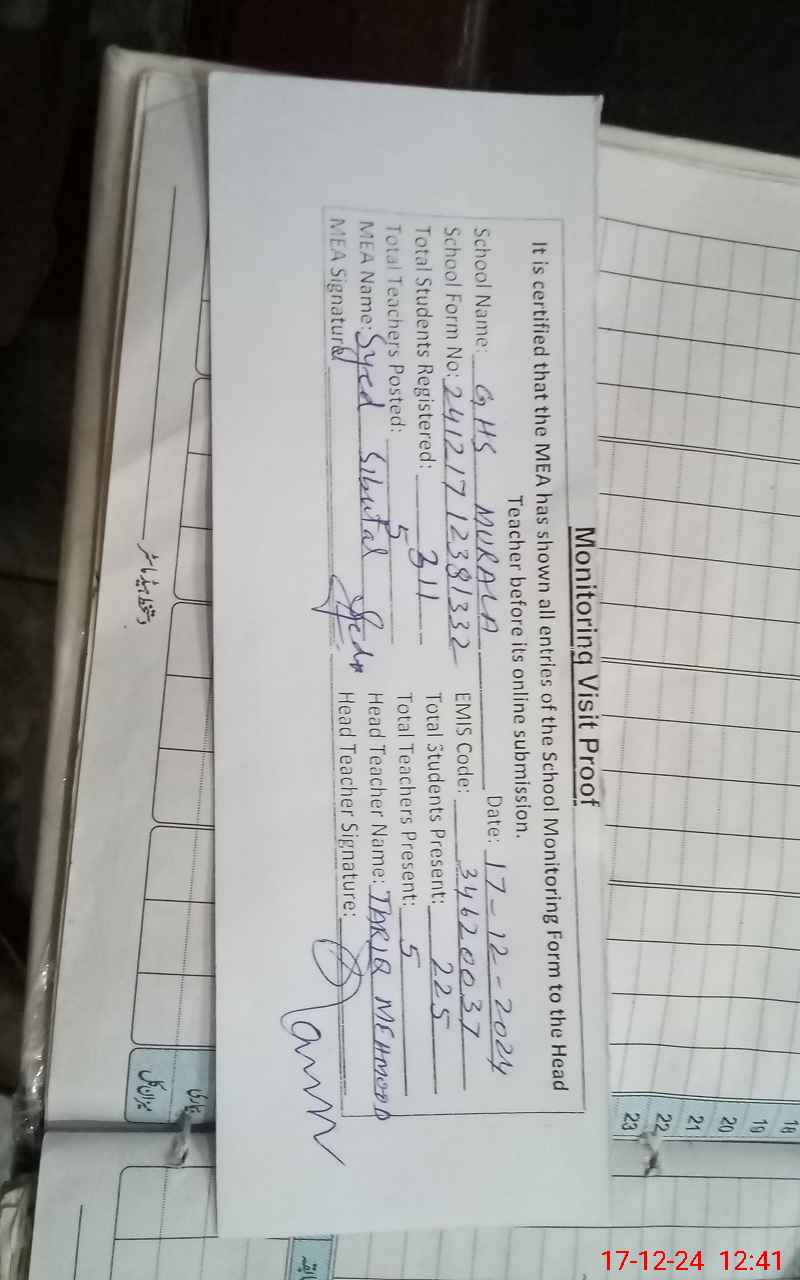 Monitoring Visit Proof
It is certified that the MEA has shown all entries of the School Monitoring Form to the Head
Teacher before its online submission.
Date: 17-12-2024
School Name: GHS MURALA
School Form No: 24121712381332 EMIS Code: 34620037
Total Students Registered: 311 Total Students Present: 225
Total Teachers Posted: 5 Total Teachers Present: 5
MEA Name: Syed Sibutal Head Teacher Name: TARIQ MEHMOOD
MEA Signature Head Teacher Signature:
دستخط ہیڈ ماسٹر
میزان کل
18
19
20
21
22
23
17-12-24 12:41